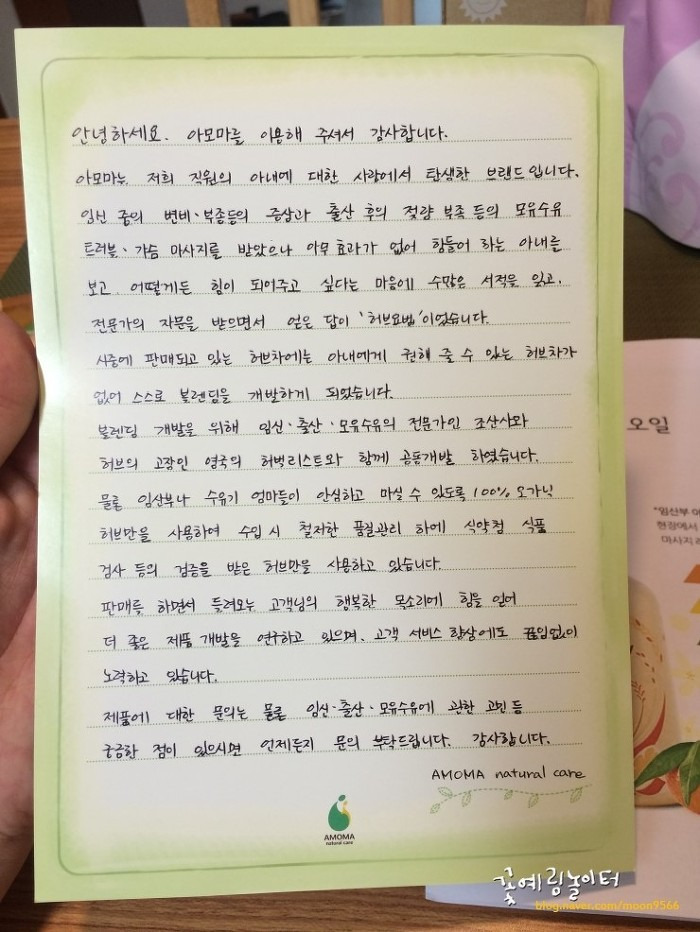 안녕하세요. 아모마를 이용해 주셔서 감사합니다.
아모마는 저희 직원의 아내에 대한 사랑에서 탄생한 브랜드입니다.
임신 중의 변비·부종등의 증상과 출산 후의 젖량 부족 등의 모유수유
트러블·가슴 마사지를 받았으나 아무 효과가 없어 힘들어 하는 아내를
보고 어떻게든 힘이 되어주고 싶다는 마음에 수많은 서적을 읽고,
전문가의 자문을 받으면서 얻은 답이 '허브요법'이었습니다.
시중에 판매되고 있는 허브차에는 아내에게 권해 줄 수 있는 허브차가
없어 스스로 블렌딩을 개발하게 되었습니다.
블렌딩 개발을 위해 임신·출산·모유수유의 전문가인 조산사와
허브의 고장인 영국의 허벌리스트와 함께 공동개발 하였습니다.
물론 임산부나 수유기 엄마들이 안심하고 마실 수 있도록 100% 오가닉
허브만을 사용하여 수입 시 철저한 품질관리 하에 식약청 식품
검사 등의 검증을 받은 허브만을 사용하고 있습니다.
판매를 하면서 들려오는 고객님의 행복한 목소리에 힘을 얻어
더 좋은 제품 개발을 연구하고 있으며, 고객 서비스 향상에도 끊임없이
노력하고 있습니다.
제품에 대한 문의는 물론 임신·출산·모유수유에 관한 고민 등
궁금한 점이 있으시면 언제든지 문의 부탁드립니다. 감사합니다.
AMOMA natural care
AMOMA
natural care
오일
"임산부
현장에서
마사지
꽃예림놀이터
blog.naver.com/moon9566